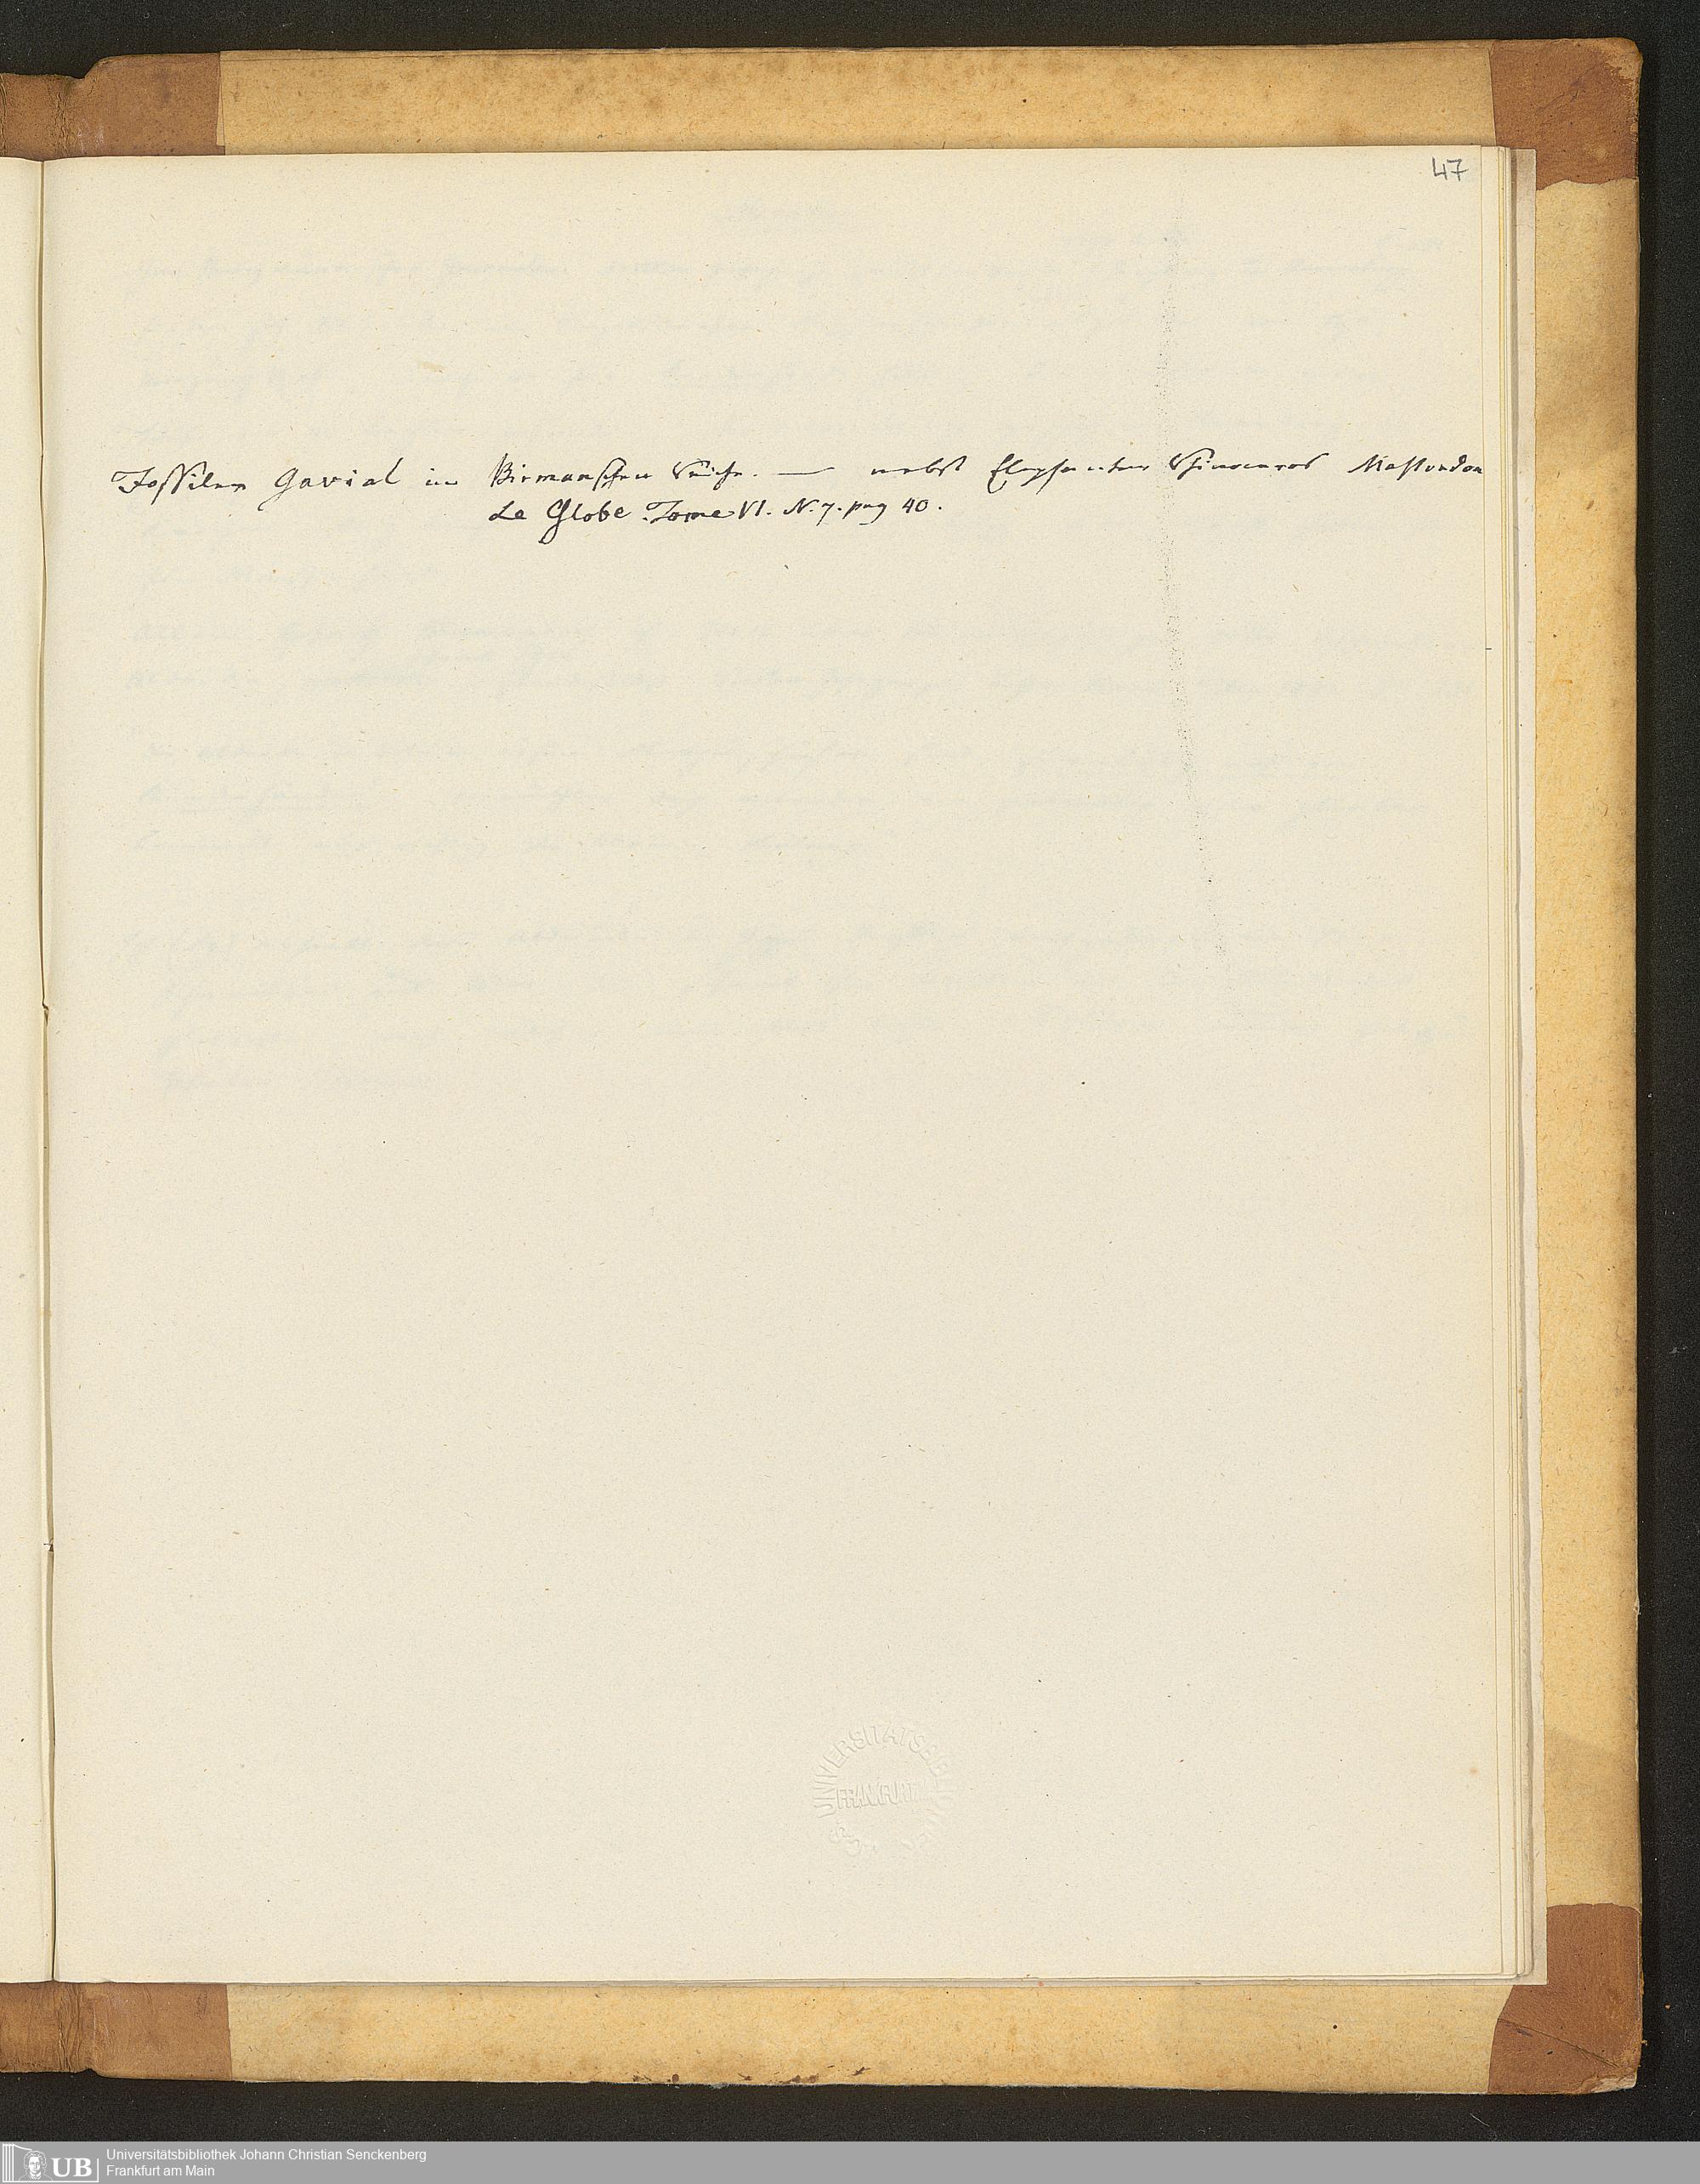 47
Fossiler Gavial im Birmanschen Reiche. — nebst Elephanten Rhinoceros Mastondon
Le Globe. Tome VI. N. 7. pag 40.
UNIVERSITÄTSBIBLIOTHEK
FRANKFURT
UB
Universitätsbibliothek Johann Christian Senckenberg
Frankfurt am Main